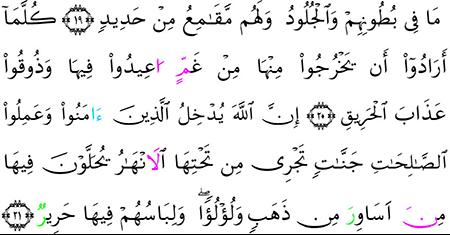 مَا فِى بُطُونِهِمْ وَالْجُلُودُ وَلَهُم مَّقَـٰمِعُ مِنْ حَدِيدٍ ﴿١٩﴾ كُلَّمَآ
أَرَادُوٓا۟ أَن يَخْرُجُوا۟ مِنْهَا مِنْ غَمٍّ اعِيدُوا۟ فِيهَا وَذُوقُوا۟
عَذَابَ الْحَرِيقِ ﴿٢٠﴾ إِنَّ اللَّهَ يُدْخِلُ الَّذِينَ ءَامَنُوا۟ وَعَمِلُوا۟
الصَّـٰلِحَـٰتِ جَنَّـٰتٍ تَجْرِى مِن تَحْتِهَا الَانْهَـٰرُ يُحَلَّوْنَ فِيهَا
مِنَ اَسَاوِرَ مِن ذَهَبٍ وَلُؤْلُؤًا ۖ وَلِبَاسُهُمْ فِيهَا حَرِيرٌ ﴿٢١﴾